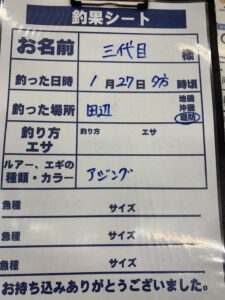 釣果シート
お名前 三代目 様
釣った日時 1月27日夕方 時頃
釣った場所 田辺 地磯 沖磯 堤防
釣り方 エサ 釣り方 エサ
ルアー、エギの種類・カラー アジング
魚種 サイズ
魚種 サイズ
魚種 サイズ
お持ち込みありがとうございました。